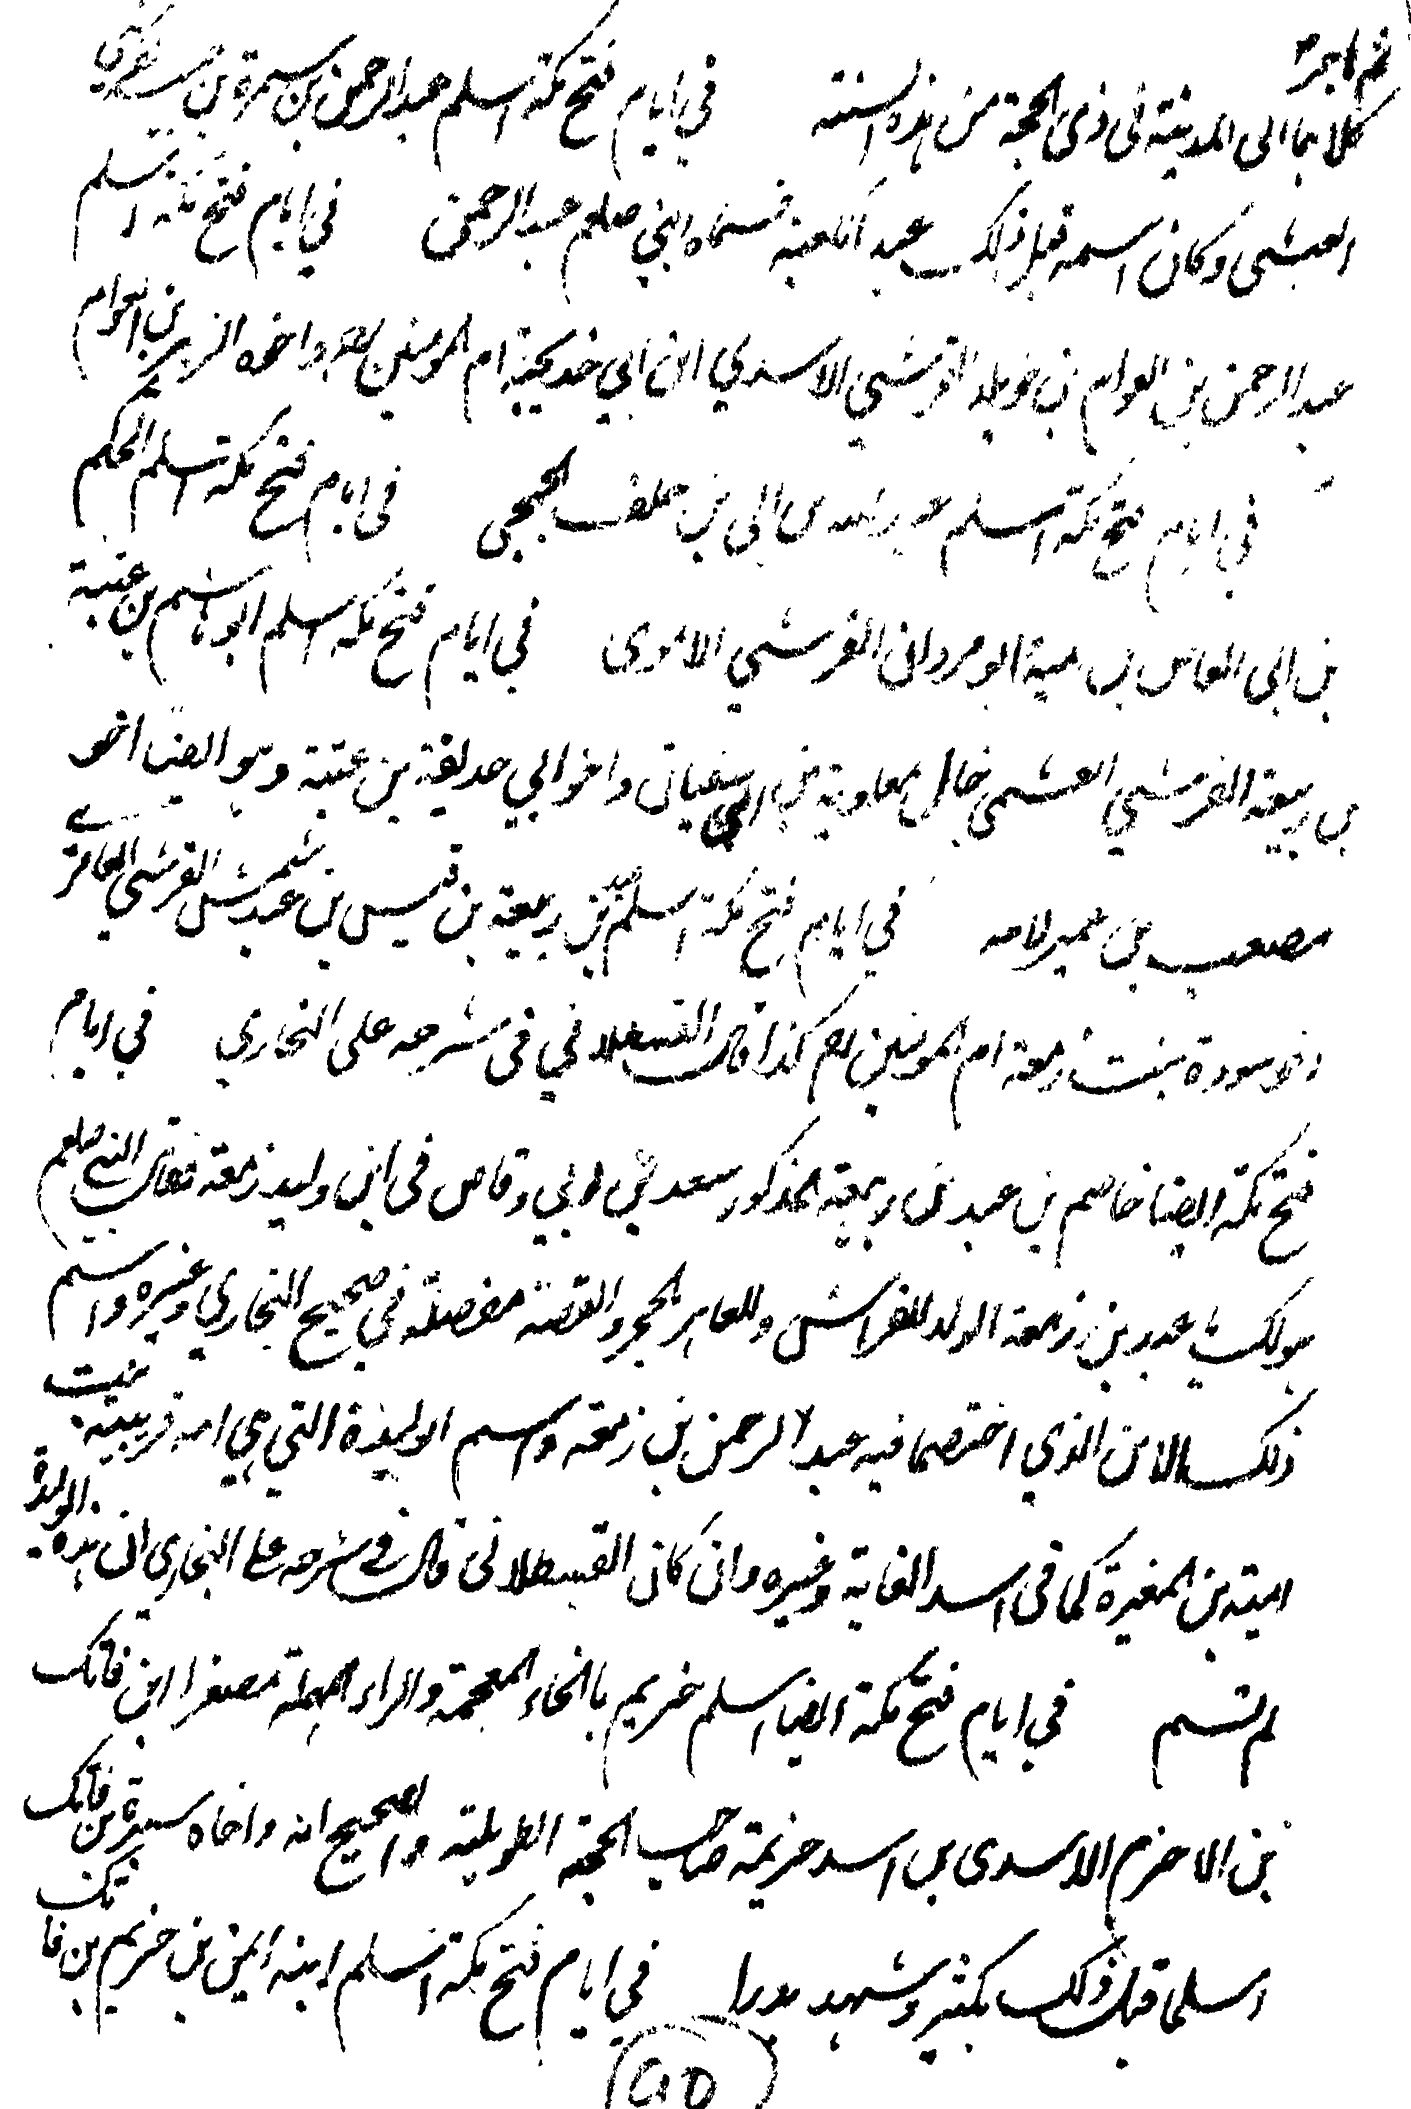 ثم هاجر
كلاهما الى المدينة فى ذى الحجة من هذه السنة في ايام فتح مكة اسلم عبد الرحمن بن سمرة بن
العبشمى وكان اسمه قبل ذلك عبد الكعبة فسماه النبي صلعم عبد الرحمن في ايام فتح مكة اسلم
عبد الرحمن بن العوام بن خويلد القرشي الاسدي ابن اخي خديجة ام المومنين رضي واخوه الزبير بن العوام
في ايام فتح مكة اسلم بن ابى بن خلف الجمحى فى ايام فتح مكة اسلم الحكم
بن ابى العاص بن امية ابو مروان القرشي الاموى في ايام فتح مكة اسلم ابو هاشم بن عتبة
بن ربيعة القرشي العبشمي خال معاوية بن ابي سفيان واخو ابي حذيفة بن عتبة وهو ايضا اخو
مصعب بن عمير لامه في ايام فتح مكة اسلم عبد بن ربيعة بن قيس بن عبد شمس القرشي العامرى
اخو سودة بنت زمعة ام المومنين رضي كذا قال القسطلاني في شرحه على البخاري في ايام
فتح مكة ايضا خاصم بن عبد بن ربيعة المذكور سعد بن ابي وقاص فى ابن وليدة زمعة فقال النبي صلعم
هو لك يا عبد بن زمعة الولد للفراش وللعاهر الحجر والقصة مفصلة في صحيح البخاري وغيره واسم
ذلك الابن الذي اختصما فيه عبد الرحمن بن زمعة واسم الوليدة التي هي امه قريبة بنت
امية بن المغيرة كما فى اسد الغابة وغيره وان كان القسطلانى قال في شرحه على البخاري ان هذه الوليدة
لم تسم في ايام فتح مكة ايضا اسلم خريم بالخاء المعجمة والراء المهملة مصغرا ابن فاتك
بن الاخرم الاسدى من اسد خزيمة صاحب الجمة الطويلة والصحيح انه واخاه سبرة بن فاتك
اسلما قبل ذلك بكثير وشهد بدرا في ايام فتح مكة اسلم ابنه ايمن بن خريم بن فاتك